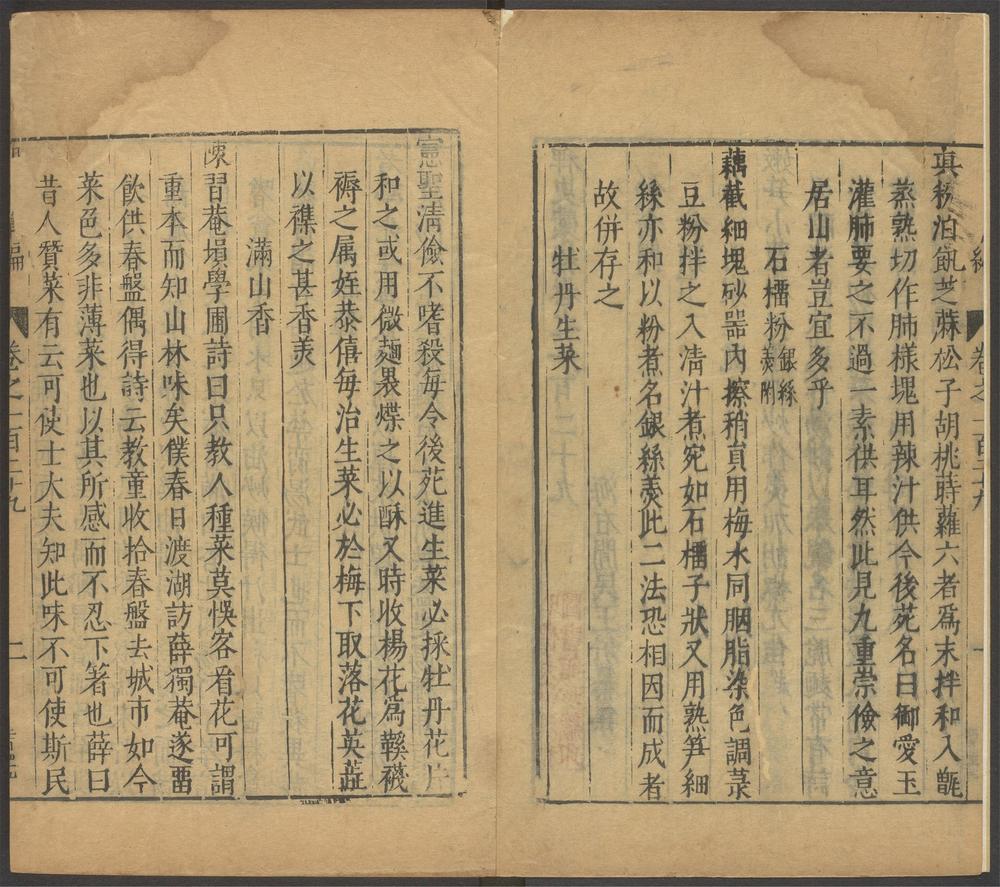 卷之一百三十九
真粉泊飥芝蔴松子胡桃蒔蘿六者爲末拌和入甑
蒸熟切作肺樣塊用辣汁供今後苑名曰御愛玉
灌肺要之不過一素供耳然此見九重崇儉之意
居山者豈宜多乎
石榴粉銀絲羹附
藕截細塊砂噐內擦稍員用梅水同胭脂染色調菉
豆粉拌之入清汁煮宛如石榴子狀又用熟笋細
絲亦和以粉煮名銀絲羹此二法恐相因而成者
故併存之
牡丹生菜
憲聖清儉不嗜殺每令後苑進生菜必採牡丹花片
和之或用微麺褁煠之以酥又時收楊花爲鞵襪
褥之属姪恭僖每治生菜必於梅下取落花英蕋
以襍之甚香羙
滿山香
陳習菴塤學圃詩曰只教人種菜莫悞客看花可謂
重本而知山林味矣僕春日渡湖訪薛獨菴遂畱
飲供春盤偶得詩云教童收拾春盤去城市如今
菜色多非薄菜也以其所感而不忍下箸也薛曰
昔人贊菜有云可使士大夫知此味不可使斯民
編
卷之一百三十九
二